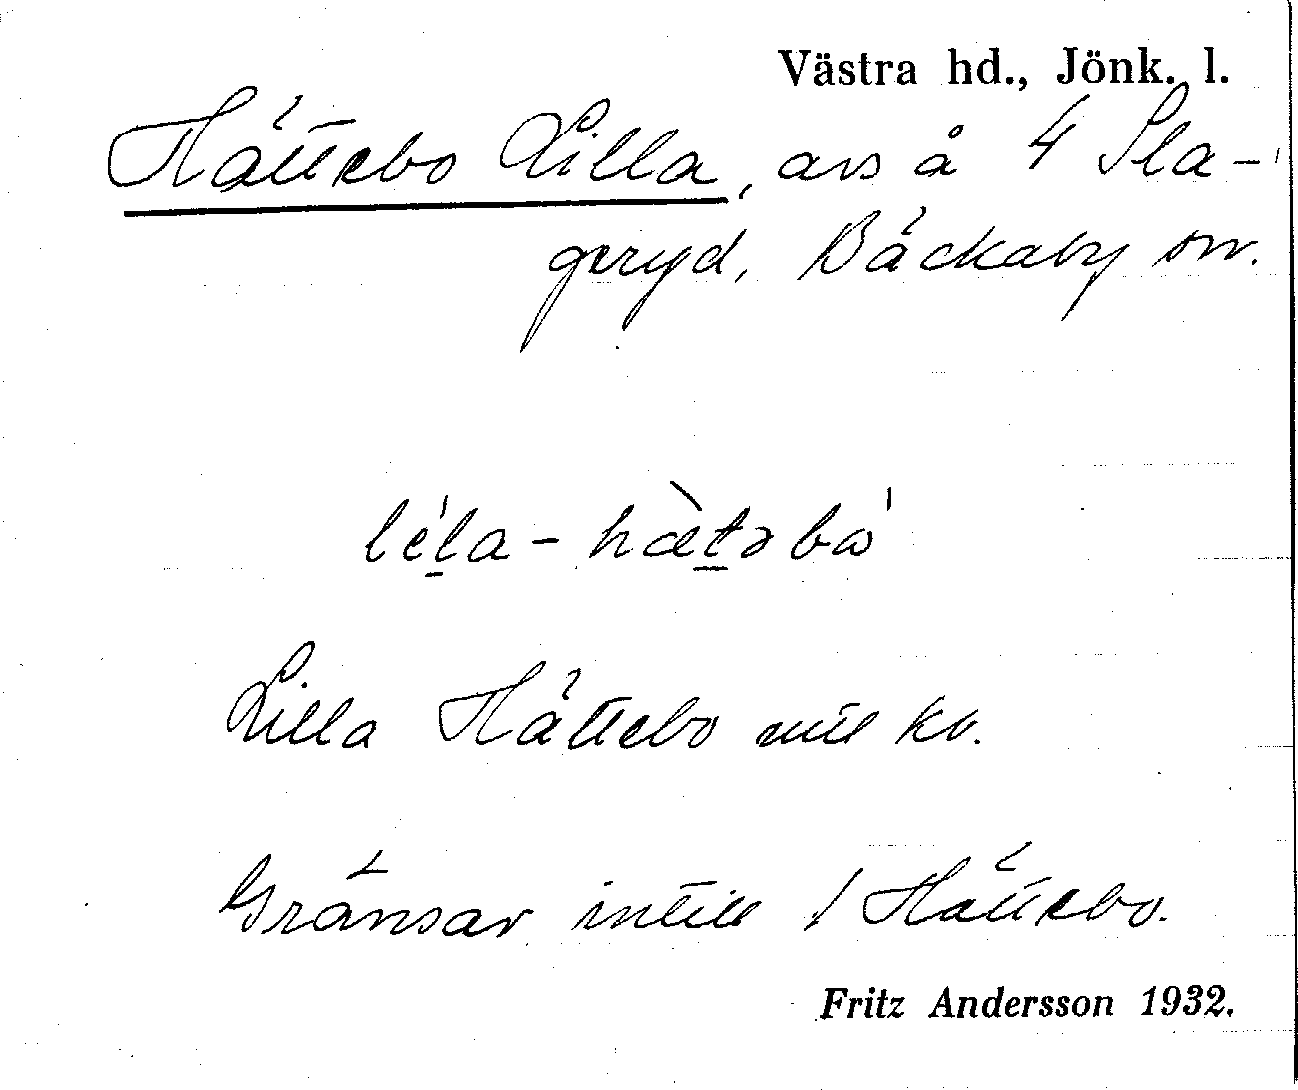 Västra hd., Jönk. l.
Hättebo Lilla, avs å 4 Sla-
geryd, Bäckaby sn.
léla - hætəbω
Lilla Hättebo enl kb.
Gränsar intill 1 Hättebo.
Fritz Andersson 1932.